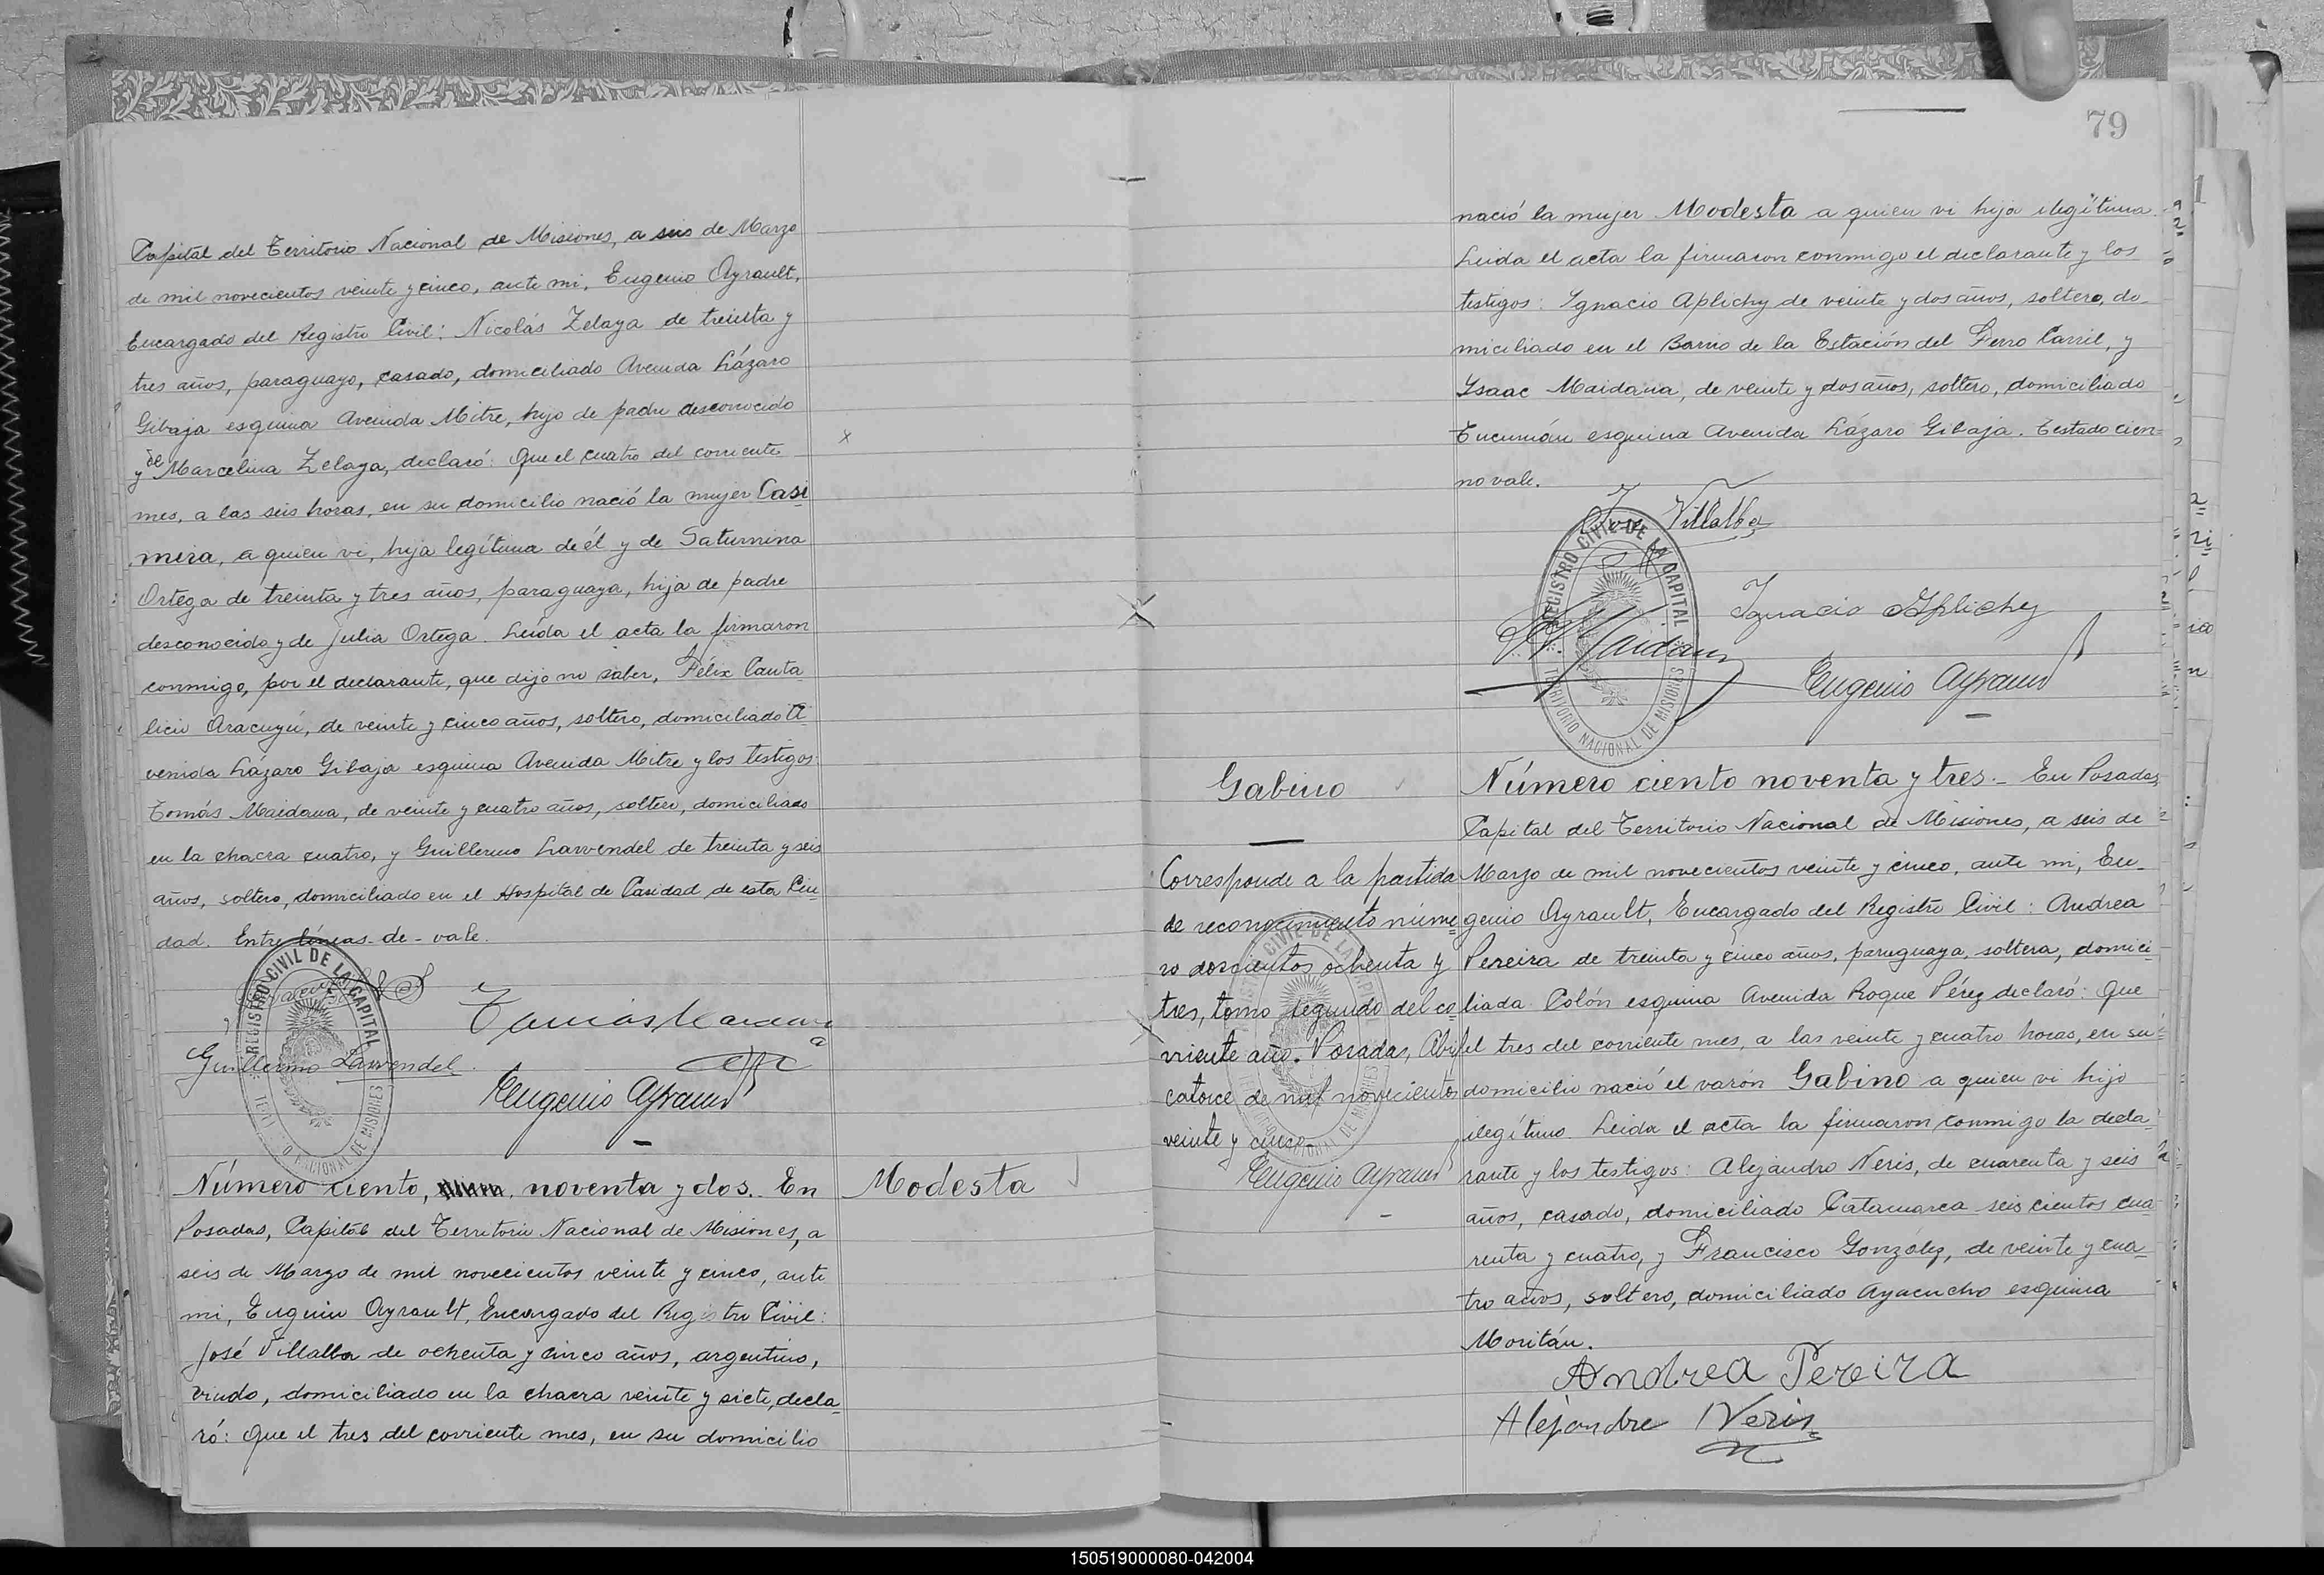 Capital del Territorio Nacional de Misiones, a seis de Marzo
de mil novecientos veinte y cinco, ante mi, Eugenio Ayrault,
Encargado del Registro Civil: Nicolás Zelaya de treinta y
tres años, paraguayo, casado, domiciliado Avenida Lázaro
Gibaja esquina Avenida Mitre, hijo de padre desconocido
y de Marcelina Zelaya, declaró: Que el cuatro del corriente
mes, a las seis horas, en su domicilio nació la mujer Casi
mera, a quien vi, hija legítima de él y de Saturnina
Ortega de treinta y tres años, paraguaya, hija de padre
desconocido y de Julia Ortega. Leída el acta la firmaron
conmigo, por el declarante, que dijo no saber, Félix Canta
licio Aracuyú, de veinte y cinco años, soltero, domiciliado A
venida Lázaro Gibaja esquina Avenida Mitre y los testigos:
Tomás Maidana, de veinte y cuatro años, soltero, domiciliado
en la chacra cuatro, y Guillermo Lawendel de treinta y seis
años, soltero, domiciliado en el Hospital de Caridad de esta Ciu
dad. Entre líneas - de - vale.
REGISTRO CIVIL DE LA CAPITAL
Tomás Maidana
Guillermo Lawendel
Eugenio Ayrault
Número ciento, noventa y dos. En
Posadas, Capital del Territorio Nacional de Misiones, a
seis de Marzo de mil novecientos veinte y cinco, ante
mi, Eugenio Ayrault, Encargado del Registro Civil:
José Villalba de ochenta y cinco años, argentino,
viudo, domiciliado en la chacra veinte y siete, decla
ró: Que el tres del corriente mes, en su domicilio
Modesta
79
nació la mujer Modesta a quien vi hija ilegítima.
Leida el acta la firmaron conmigo el declarante y los
testigos: Ygnacio Aplichy de veinte y dos años, soltero, do
miciliado en el Barrio de la Estación del Ferro Carril, y
Ysaac Maidana, de veinte y dos años, soltero, domiciliado
Tucumán esquina Avenida Lázaro Gibaja. Testado cien
no vale.
José Villalba
REGISTRO CIVIL DE LA CAPITAL
TERRITORIO NACIONAL DE MISIONES
Ignacio Aplichy
Maidana
Eugenio Ayrault
Gabino
Corresponde a la partida
de reconocimiento núme
ro doscientos ochenta y
tres, tomo segundo del co
rriente año. Posadas, Abril
catorce de mil novecientos
veinte y cinco.
Eugenio Ayrault
Número ciento noventa y tres. En Posadas,
Capital del Territorio Nacional de Misiones, a seis de
Marzo de mil novecientos veinte y cinco, ante mi, Eu
genio Ayrault, Encargado del Registro Civil: Andrea
Pereira de treinta y cinco años, paraguaya, soltera, domici
liada Colón esquina Avenida Roque Pérez declaró: Que
el tres del corriente mes, a las veinte y cuatro horas, en su
domicilio nació el varón Gabino a quien vi hijo
ilegítimo. Leida el acta la firmaron conmigo la decla
rante y los testigos: Alejandro Neris, de cuarenta y seis
años, casado, domiciliado Catamarca seiscientos cua
renta y cuatro, y Francisco González, de veinte y cua
tro años, soltero, domiciliado Ayacucho esquina
Moritán.
Andrea Pereira
Alejandro Neris
150519000080-042004